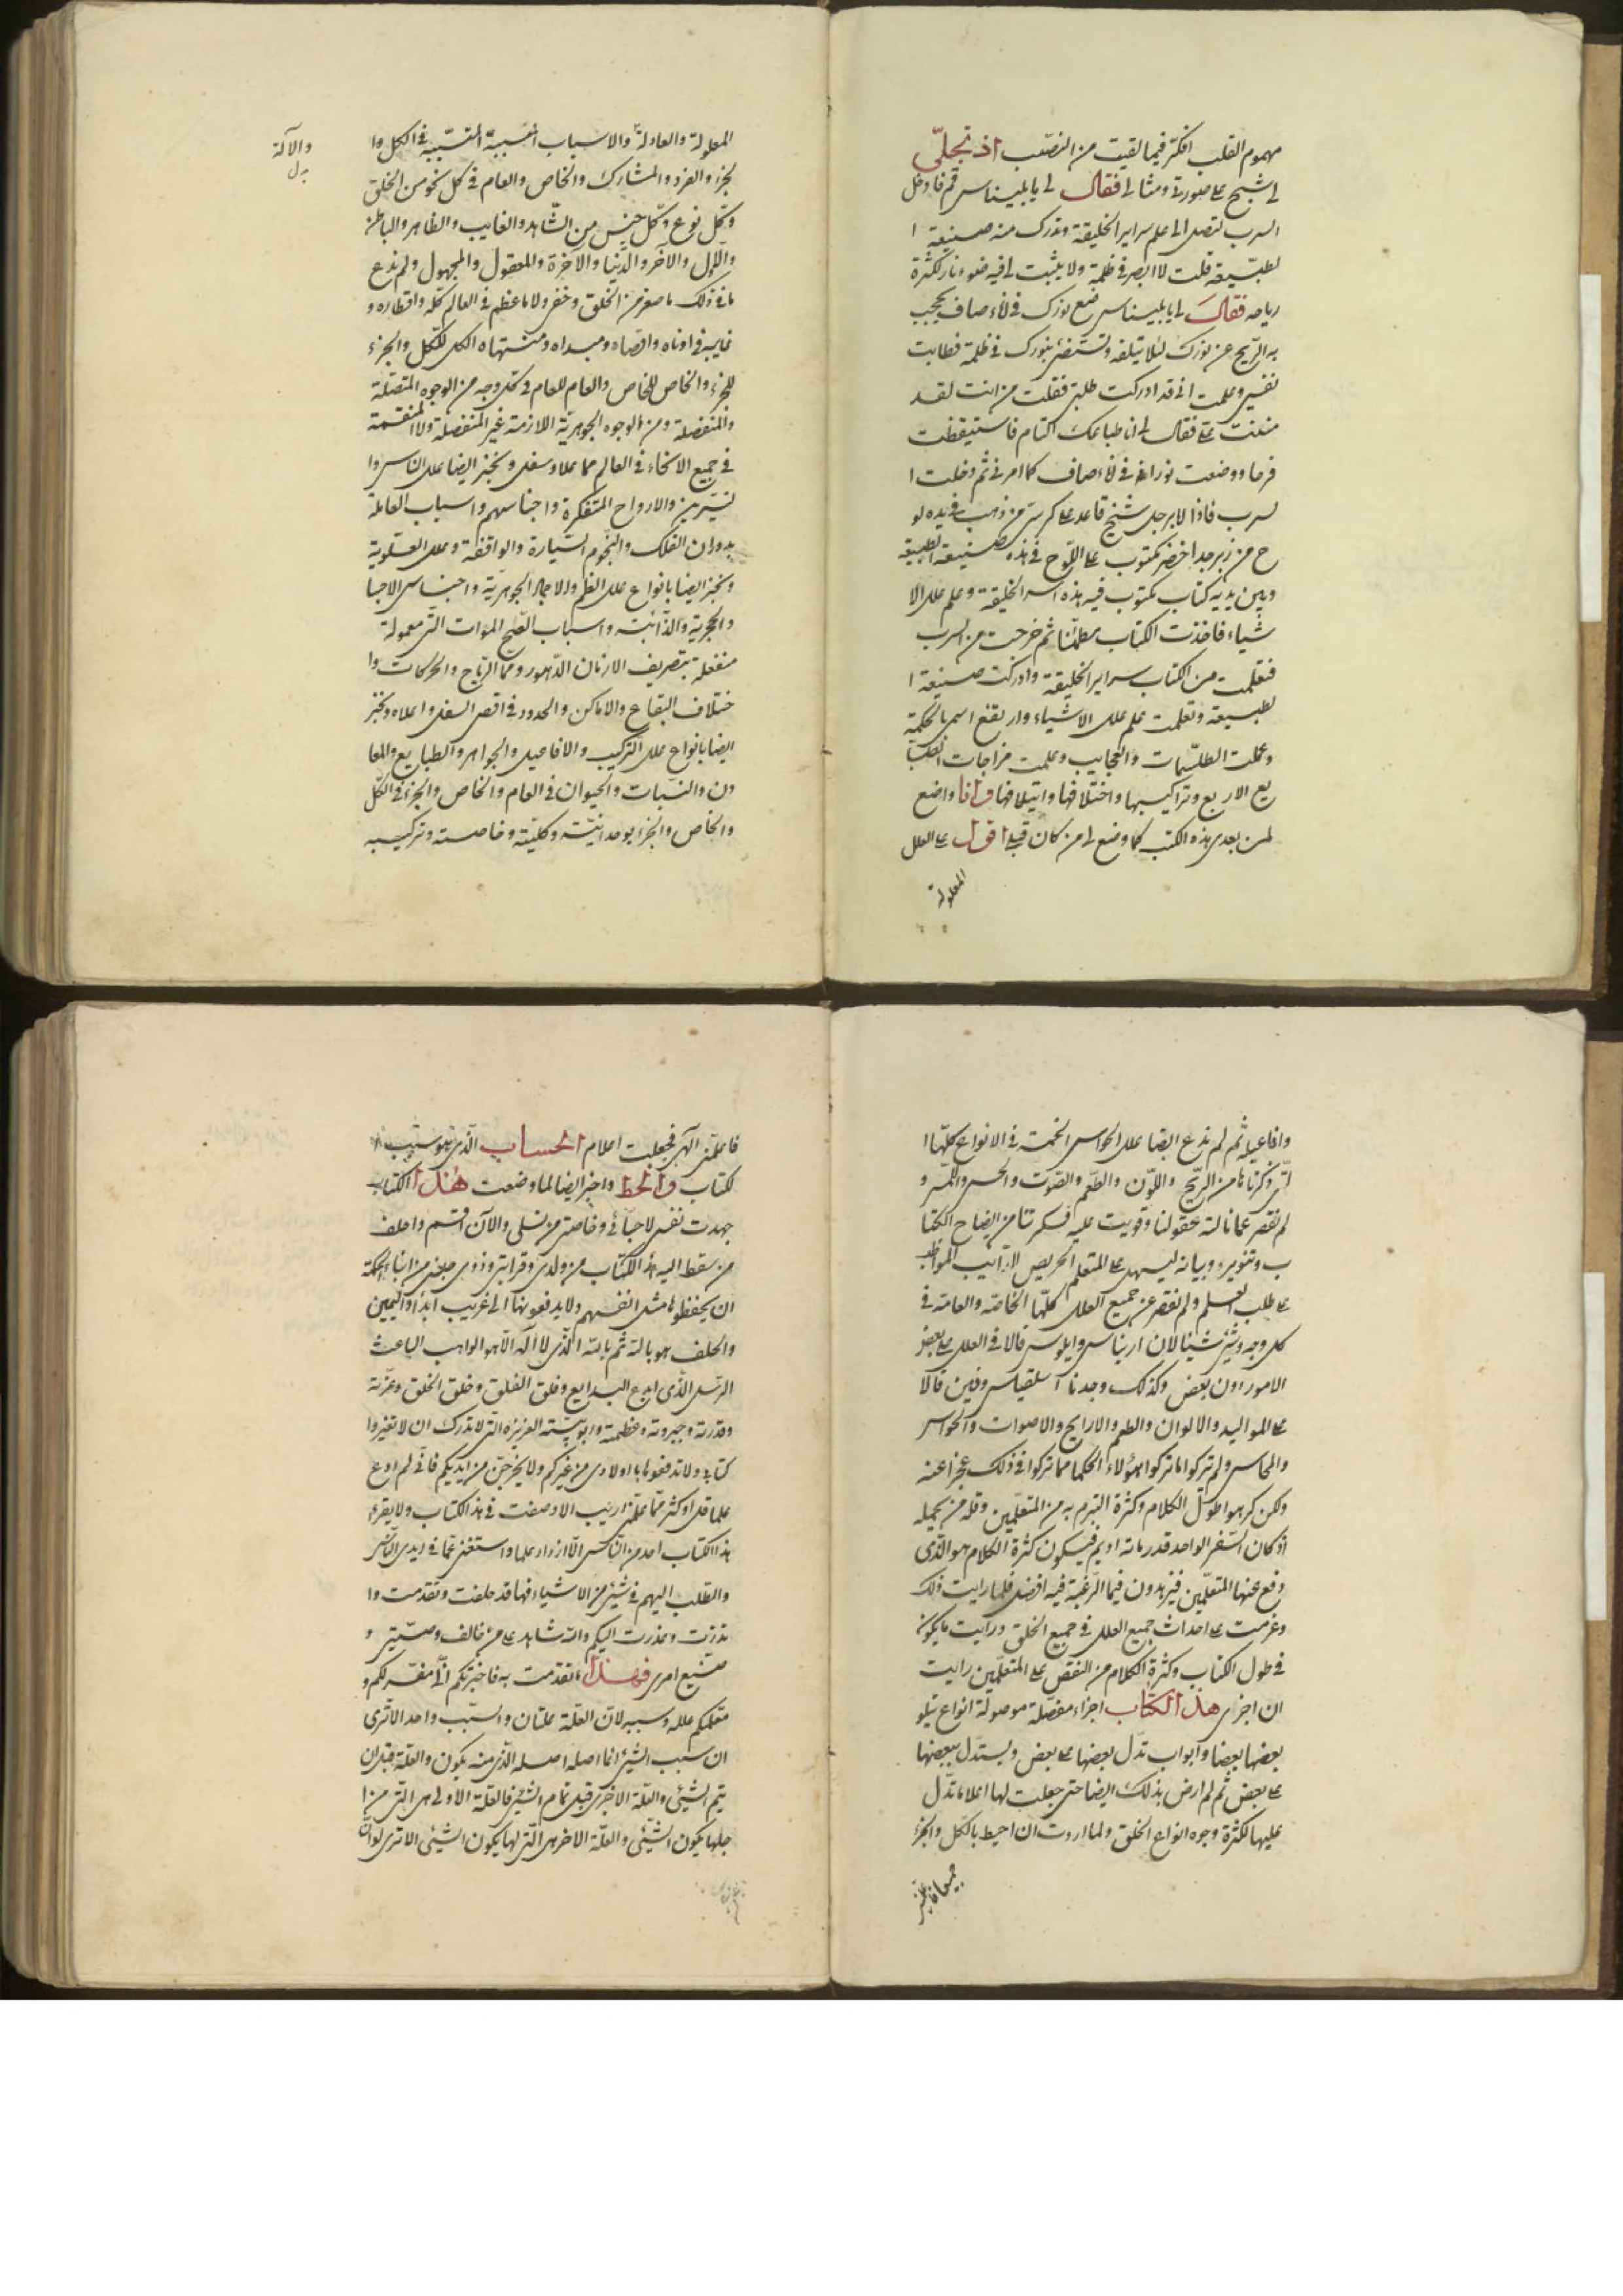 مهموم القلب افكّر فيما لقيت من النصب اذ تجلّى
لى شبح على صورتى ومثالى فقال لى يا بليناس قم فادخل
السرب لتصل الى علم سراير الخليقة وتدرك منه صنيعة ا
لطبيعة قلت لا ابصر فى ظلمة ولا يثبت لى فيه ضوء نار لكثرة
رياحه فقال لى يا بليناس ضع نورك فى اناء صاف يحجب
به الريح عن نورك لئلا يتلفه وتستضئ بنورك فى ظلمة فطابت
نفسى وعلمت انى قد ادركت طلبتى فقلت من انت لقد
مننت على فقال لى انا طباعك التام فاستيقظت
فرحا ووضعت نورا فى اناء صاف كما امرنى ثم دخلت ا
لسرب فاذا لا برجل شيخ قاعد على كرسى من ذهب فى يده لو
ح من زبرجد اخضر مكتوب على اللّوح فى هذه صنيعة الطبيعة
وبين يديه كتاب مكتوب فيه هذه اسر الخليقة وعلم علل الا
شياء فاخذت الكتاب مطمئنا ثم خرجت من السرب
فتعلمت من الكتاب سراير الخليقة وادركت صنيعة ا
لطبيعة وتعلمت علم علل الاشياء وارتفع اسمى بالحكمة
وعملت الطلسمات والعجايب وعلمت مزاجات الطبا
يع الاربع وتراكيبها واختلافها وايتلافها وانا واضع
لمن بعدى هذه الكتب كما وضع لى من كان قبلى اقول على العلل
المعلولة
المعلولة والعادلة والاسباب التسبيبة فى الكل وا
لجزء والفرد والمشارك والخاص والعام فى كل نحو من الخلق
وكل نوع وكل جنس من الشاهد والغايب والظاهر والباطن
والاول والآخر والدنيا والآخرة والمعقول والمجهول ولم ندع
مافى ذلك ما صغر من الخلق وخفى ولا ما عظم فى العالم كله واقطاره و
فى ادناه واقصاه ومبداه ومنتهاه الكل للكل والجزء
للجزء والخاص للخاص والعام للعام فى كل وجه من الوجوه المتصلة
والمنفصلة ومن الوجوه الجوهرية اللازمة غير المنفصلة ولا المنقسمة
فى جميع الانحاء فى العالم مما علا وسفل ونخبر ايضا علل الناس وا
لنيرين والارواح المتفكرة واجناسهم واسباب العاملة
بدوران الفلك والنجوم السيارة والواقفة وعلل العلوية
ونخبر ايضا بانواع علل العلم والاجرام الجوهرية واجناس الاجسا
والحجرية والذائبة واسباب الموات التى معمولة
منفعلة بتصريف الازمان الدهور ومر الرياح والحركات وا
ختلاف البقاع والاماكن والحدود فى اقصى السفل واعلاه ونخبر
ايضا بانواع علل التركيب والافاعيل والجواهر والطبايع والمعا
دن والنبات والحيوان فى العام والخاص والجزء فى الكل
والخاص والجزء بوحدانيته وكليته وخاصته وتركيبه
والآلة
بدل
وافاعيله ثم لم ندع ايضا علل الحواس الخمسة فى الانواع كلها ا
لتى ذكرناها من الريح واللون والطعم والصوت والحس واللمس و
لم نقصر عما نالته عقولنا وقويت عليه فكرتنا من ايضاح الكتا
ب وتنويره وبيانه ليسهل على المتعلم الحريص الدائب المواظب
على طلب العلم ولم نقصر عن جميع العلل كلها الخاصة والعامة فى
كل وجه وشئ شيئا لان اريناس وايلوس قالا فى العلل على بعض
الامور دون بعض وكذلك وجدنا اسلقياس وفين قالا
على المواليد والالوان والطعم والارايح والاصوات والحواس
والمحاس ولم تركوا ما تركوا هؤلاء الحكما مما تركوا فى ذلك عجزا عنه
ولكن كرهوا طول الكلام وكثرة التبرم به من المتعلمين وقلة من يحمله
اذ كان السفر الواحد قدر مائة اديم فيكون كثرة الكلام هو الذى
رفع عنها المتعلمين فيزهدون فيما الرغبة فيه افضل فلما رايت ذلك
وعزمت على احداث جميع العلل فى جميع الخلق ورايت ما يكون
فى طول الكتاب وكثرة الكلام من النقص على المتعلمين رايت
ان اجزى هذا الكتاب اجزاء مفصلة موصولة انواع يتلو
بعضها بعضا وابواب تدل بعضها على بعض ويستدل ببعضها
على بعض ثم لم ارض بذلك ايضا حتى جعلت لها اعلاما تدل
عليها لكثرة وجوه انواع الخلق ولما اردت ان احيط بالكل والجزء
فاعلمنى الهى فجعلت اعلام الحساب الذى هو سبب ا
لكتاب والخط واخبر ايضا لما وضعت هذا الكتاب
جهدت نفسى لاحبائى وخاصتى من نسلى والآن اقسم واحلف
من سقط اليه هذا الكتاب من ولدى وقرابتى وذوى جنسى من ابناء الحكمة
ان يحفظوها مثل انفسهم ولا يدفعونها الى غريب ابدا واليمين
والحلف هو بالله ثم بالله الذى لا اله الا هو الواهب الباعث
الرسل الذى ابدع البدايع وفلق الفلق وخلق الخلق وعزته
وقدرته وجبروته وعظمته وربوبيته العزيزه التى لا تدرك ان لا تغيروا
كتابى ولا تدفعوها يا اولادى من غيركم ولا يخرجن من ايديكم فانى لم ادع
علما قل او كثر مما علمنى اريب الا وصفت فى هذا الكتاب ولا يقرء
هذا الكتاب احد من الناس الا ازداد علما واستغنى عما فى ايدى الناس
والطلب اليهم فى شئ من الاشياء فها قد حلفت وتقدمت وا
نذرت وعذرت اليكم والله شاهد على من خالف وصيتى و
ضيع امرى فهذا ما تقدمت به فاخبرتكم انا مفسر لكم و
معلمكم علله وسببه لان العلة علتان والسبب واحد الا ترى
ان سبب الشئ انما اصله اصله الذى منه يكون والعلة قبل ان
يتم الشئ والعلة الاخرى قبل تمام الشئ فالعلة الاولى هى التى من ا
جلها يكون الشئ والعلة الاخرى هى التى لها يكون الشئ الا ترى لو ان